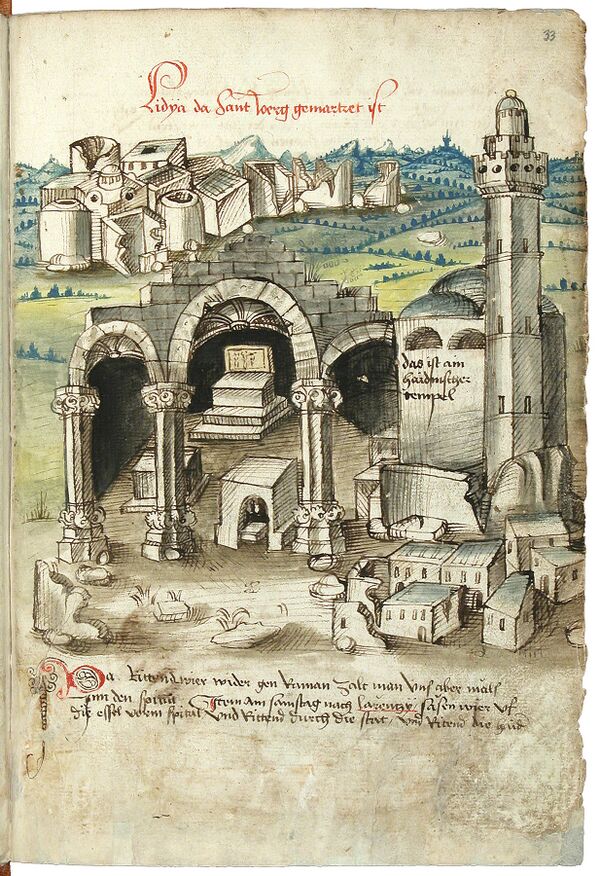 33
Lidya da sant Joerg gemartret ist
das ist ain
haidnischer
tempel
Da Rittend wier wider gen Raman zalt man vns aber mals
inn den spital Item am samstag nach Larentze sasen wier vf
die essel vorm spital vnd Rittend durch die stat vnd Rittend die